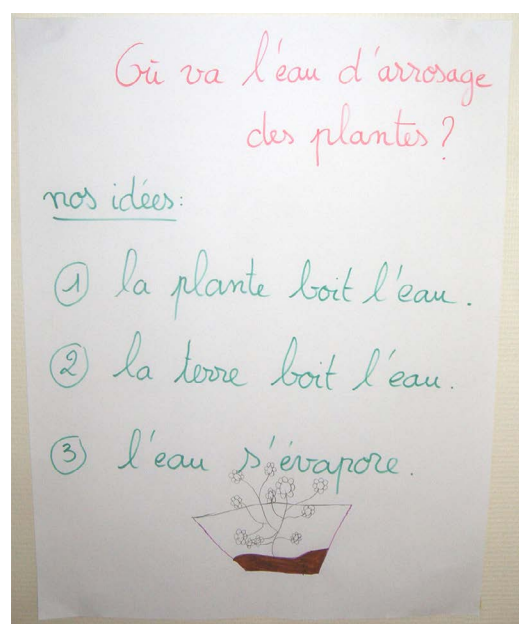 Où va l'eau d'arrosage
des plantes ?
nos idées :
1 la plante boit l'eau.
2 la terre boit l'eau.
3 l'eau s'évapore.